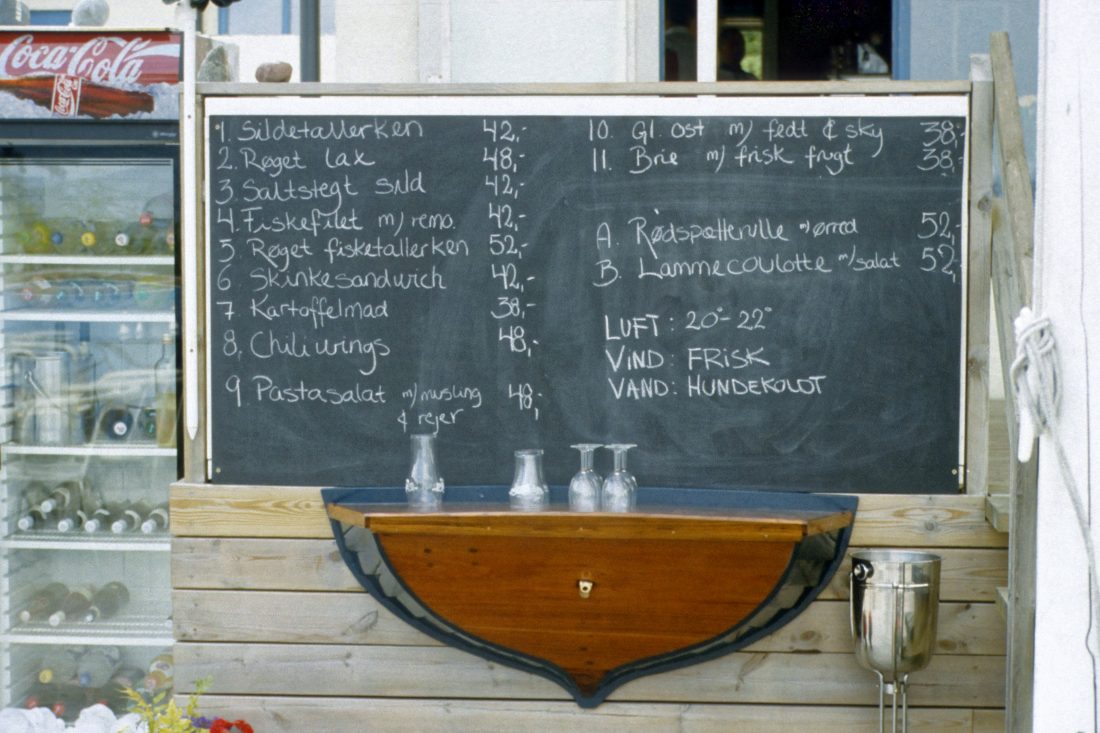 Coca-Cola
Coca-Cola
1. Sildetallerken 42,-
2. Røget lax 48,-
3. Saltstegt sild 42,-
4. Fiskefilet m/ remo. 42,-
5. Røget fisketallerken 52,-
6 Skinkesandwich 42,-
7 Kartoffelmad 38,-
8, Chiliwings 48,-
9 Pastasalat m/ musling 48,-
& rejer
10. Gl. ost m/ fedt & sky 38,-
11. Brie m/ frisk frugt 38,-
A. Rødspætterulle m/ørred 52,-
B. Lammecoulotte m/salat 52,-
LUFT : 20°- 22°
VIND: FRISK
VAND: HUNDEKOLDT